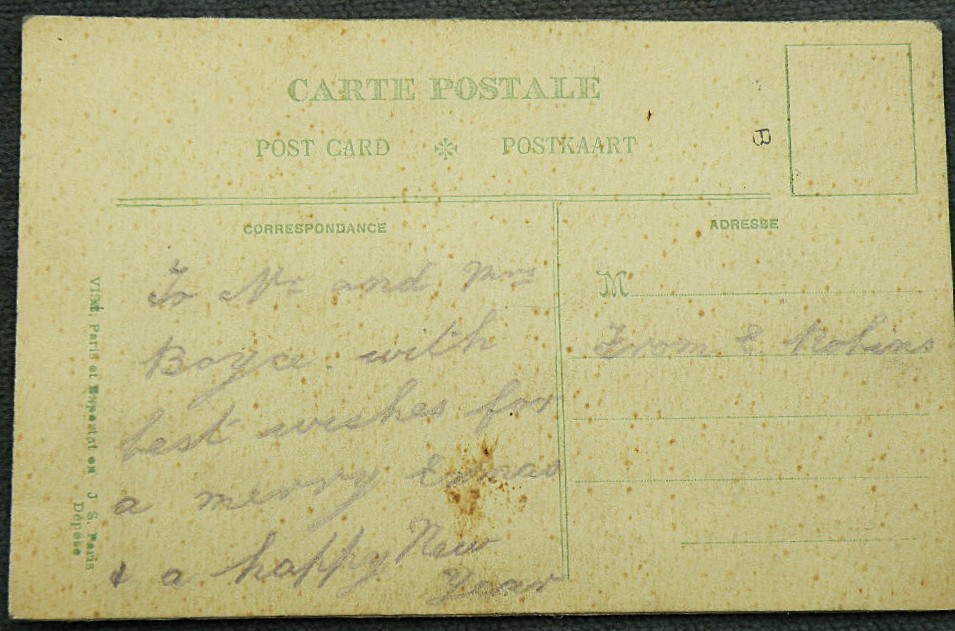 CARTE POSTALE
POST CARD ❇ POSTKAART
B
CORRESPONDANCE
To Mr and Mrs
Boyce with
best wishes for
a merry Exmas
& a happy New
Year
ADRESSE
M
From E Robins
Paris et J. S. Paris
Déposé